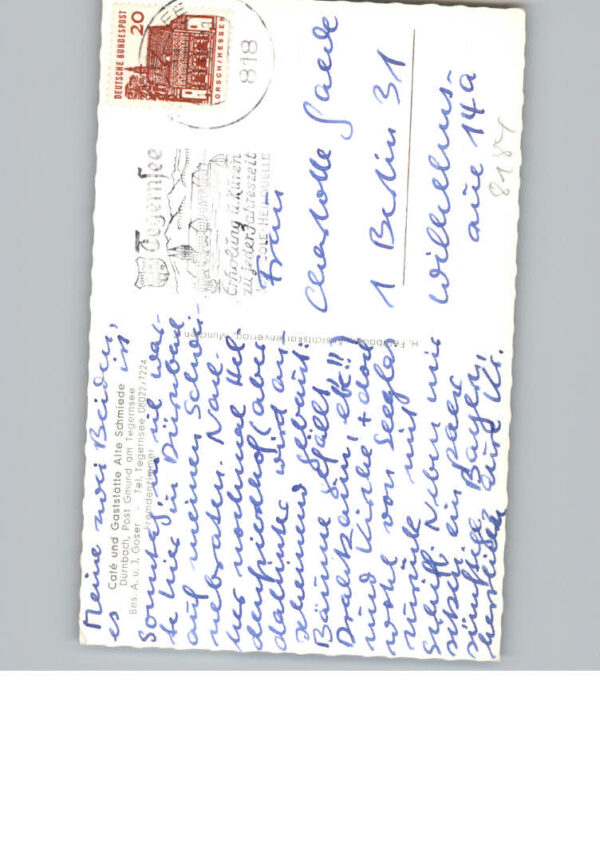 Meine zwei Beiden,
es ist
Café und Gaststätte Alte Schmiede
Dürnbach, Post Gmund am Tegernsee
Bes. A. u. J. Goser - Tel. Tegernsee 08022/7224
Fremdenzimmer
Sonntag, und war-
te hier in Dürnbach
auf meinen Schwei-
nebraten. Nach-
her nochmal Hel-
denfriedhof (aber
dahinter wird an-
scheinend gebaut:
Bäume gefällt,
Drahtzaun, etc!!)
und Kirche + dann
wohl von Seeglas
zurück mit
Schiff. Neben mir
sitzen ein paar
zünftige Bayern,
herzlichst Eure
H. Ansichtskartenverlag, München
DEUTSCHE BUNDESPOST
20
LORSCH/HESSEN
818
Tegernsee
Erholung u. Kuren
zu jeder Jahreszeit
HEILQUELLE
Frau
Charlotte
1 Berlin 31
Wilhelms-
aue 14a
8184